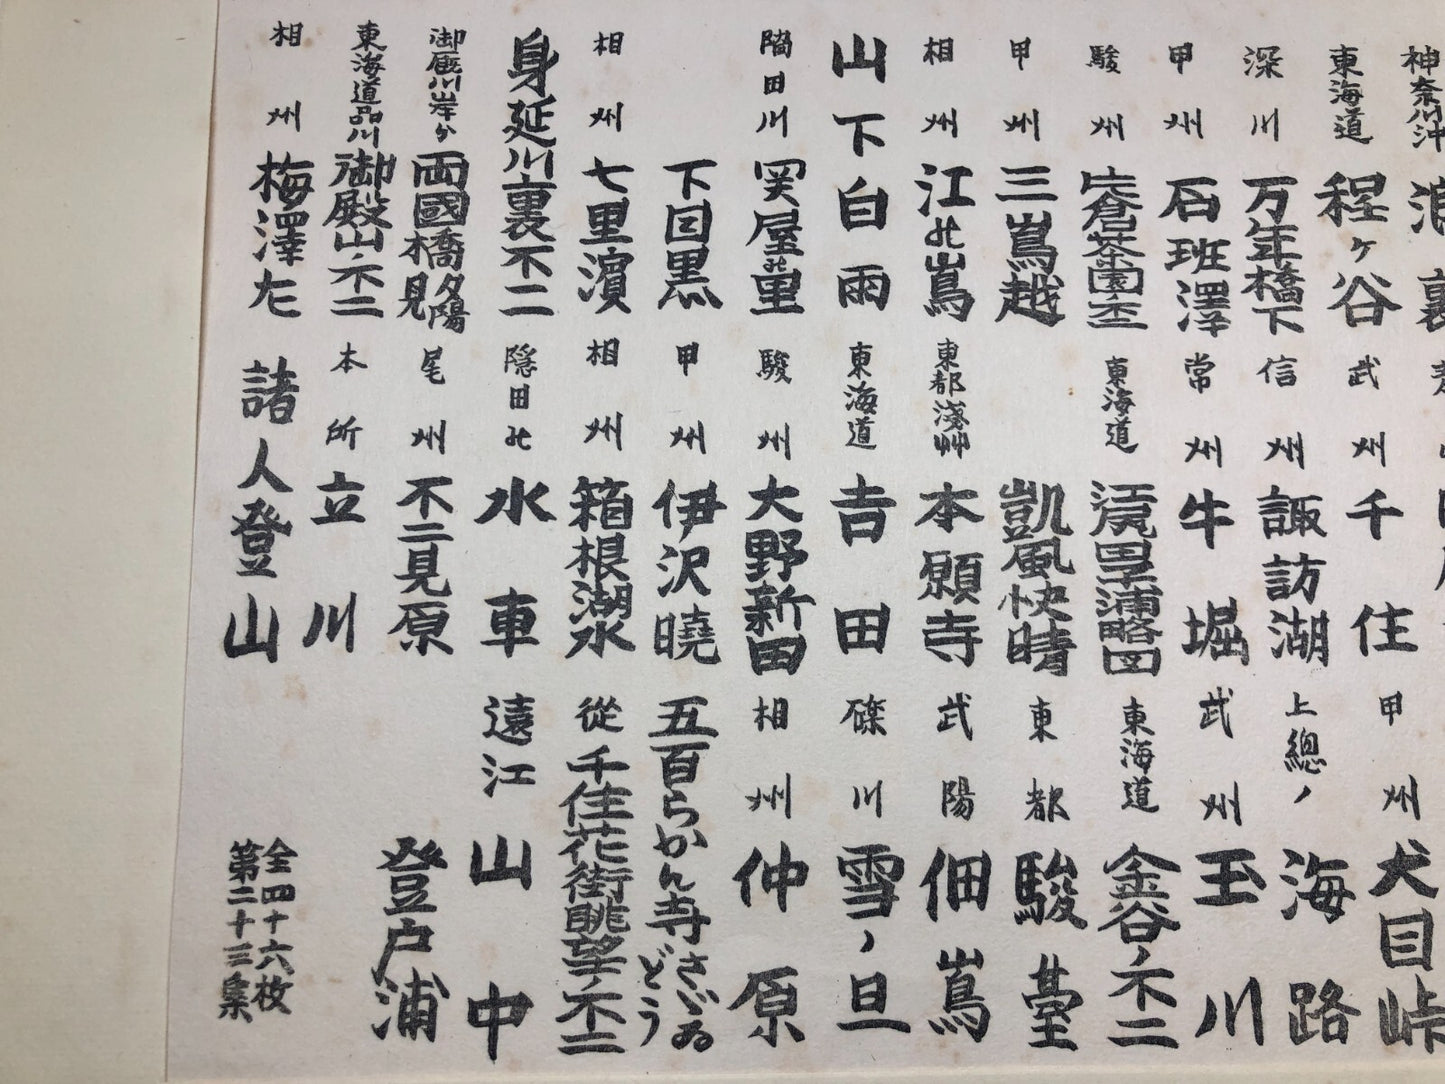 神奈川沖 浪裏
東海道 程ヶ谷 武州 千住 甲州 犬目峠
深川 万年橋下 信州 諏訪湖 上總ノ 海路
甲州 石班澤 常州 牛堀 武州 玉川
駿州 片倉茶園ノ不二 東海道 江尻田子浦略図 東海道 金谷ノ不二
甲州 三嶌越 凱風快晴 東都 駿臺
相州 江の嶌 東都淺艸 本願寺 武陽 佃嶌
山下白雨 東海道 吉田 礫川 雪ノ旦
隅田川 関屋の里 駿州 大野新田 相州 仲原
下目黒 甲州 伊沢曉 五百らかん寺さゞゐどう
相州 七里濱 相州 箱根湖水 從千住花街眺望ノ不二
身延川裏不二 隠田の 水車 遠江 山中
御厩川岸ゟ 両國橋夕陽見 尾州 不二見原 登戸浦
東海道品川 御殿山ノ不二 本所 立川
相州 梅澤左 諸人登山
全四十六枚
第二十三集